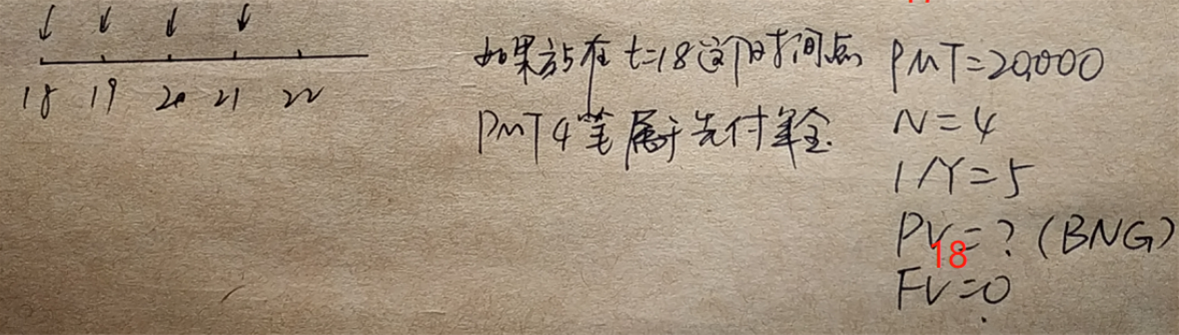 18 19 20 21 22
如果站在 t=18 这个时间点
PMT 4笔 属于先付年金.
PMT=20,000
N=4
I/Y=5
PV=?(BNG)
18
FV=0